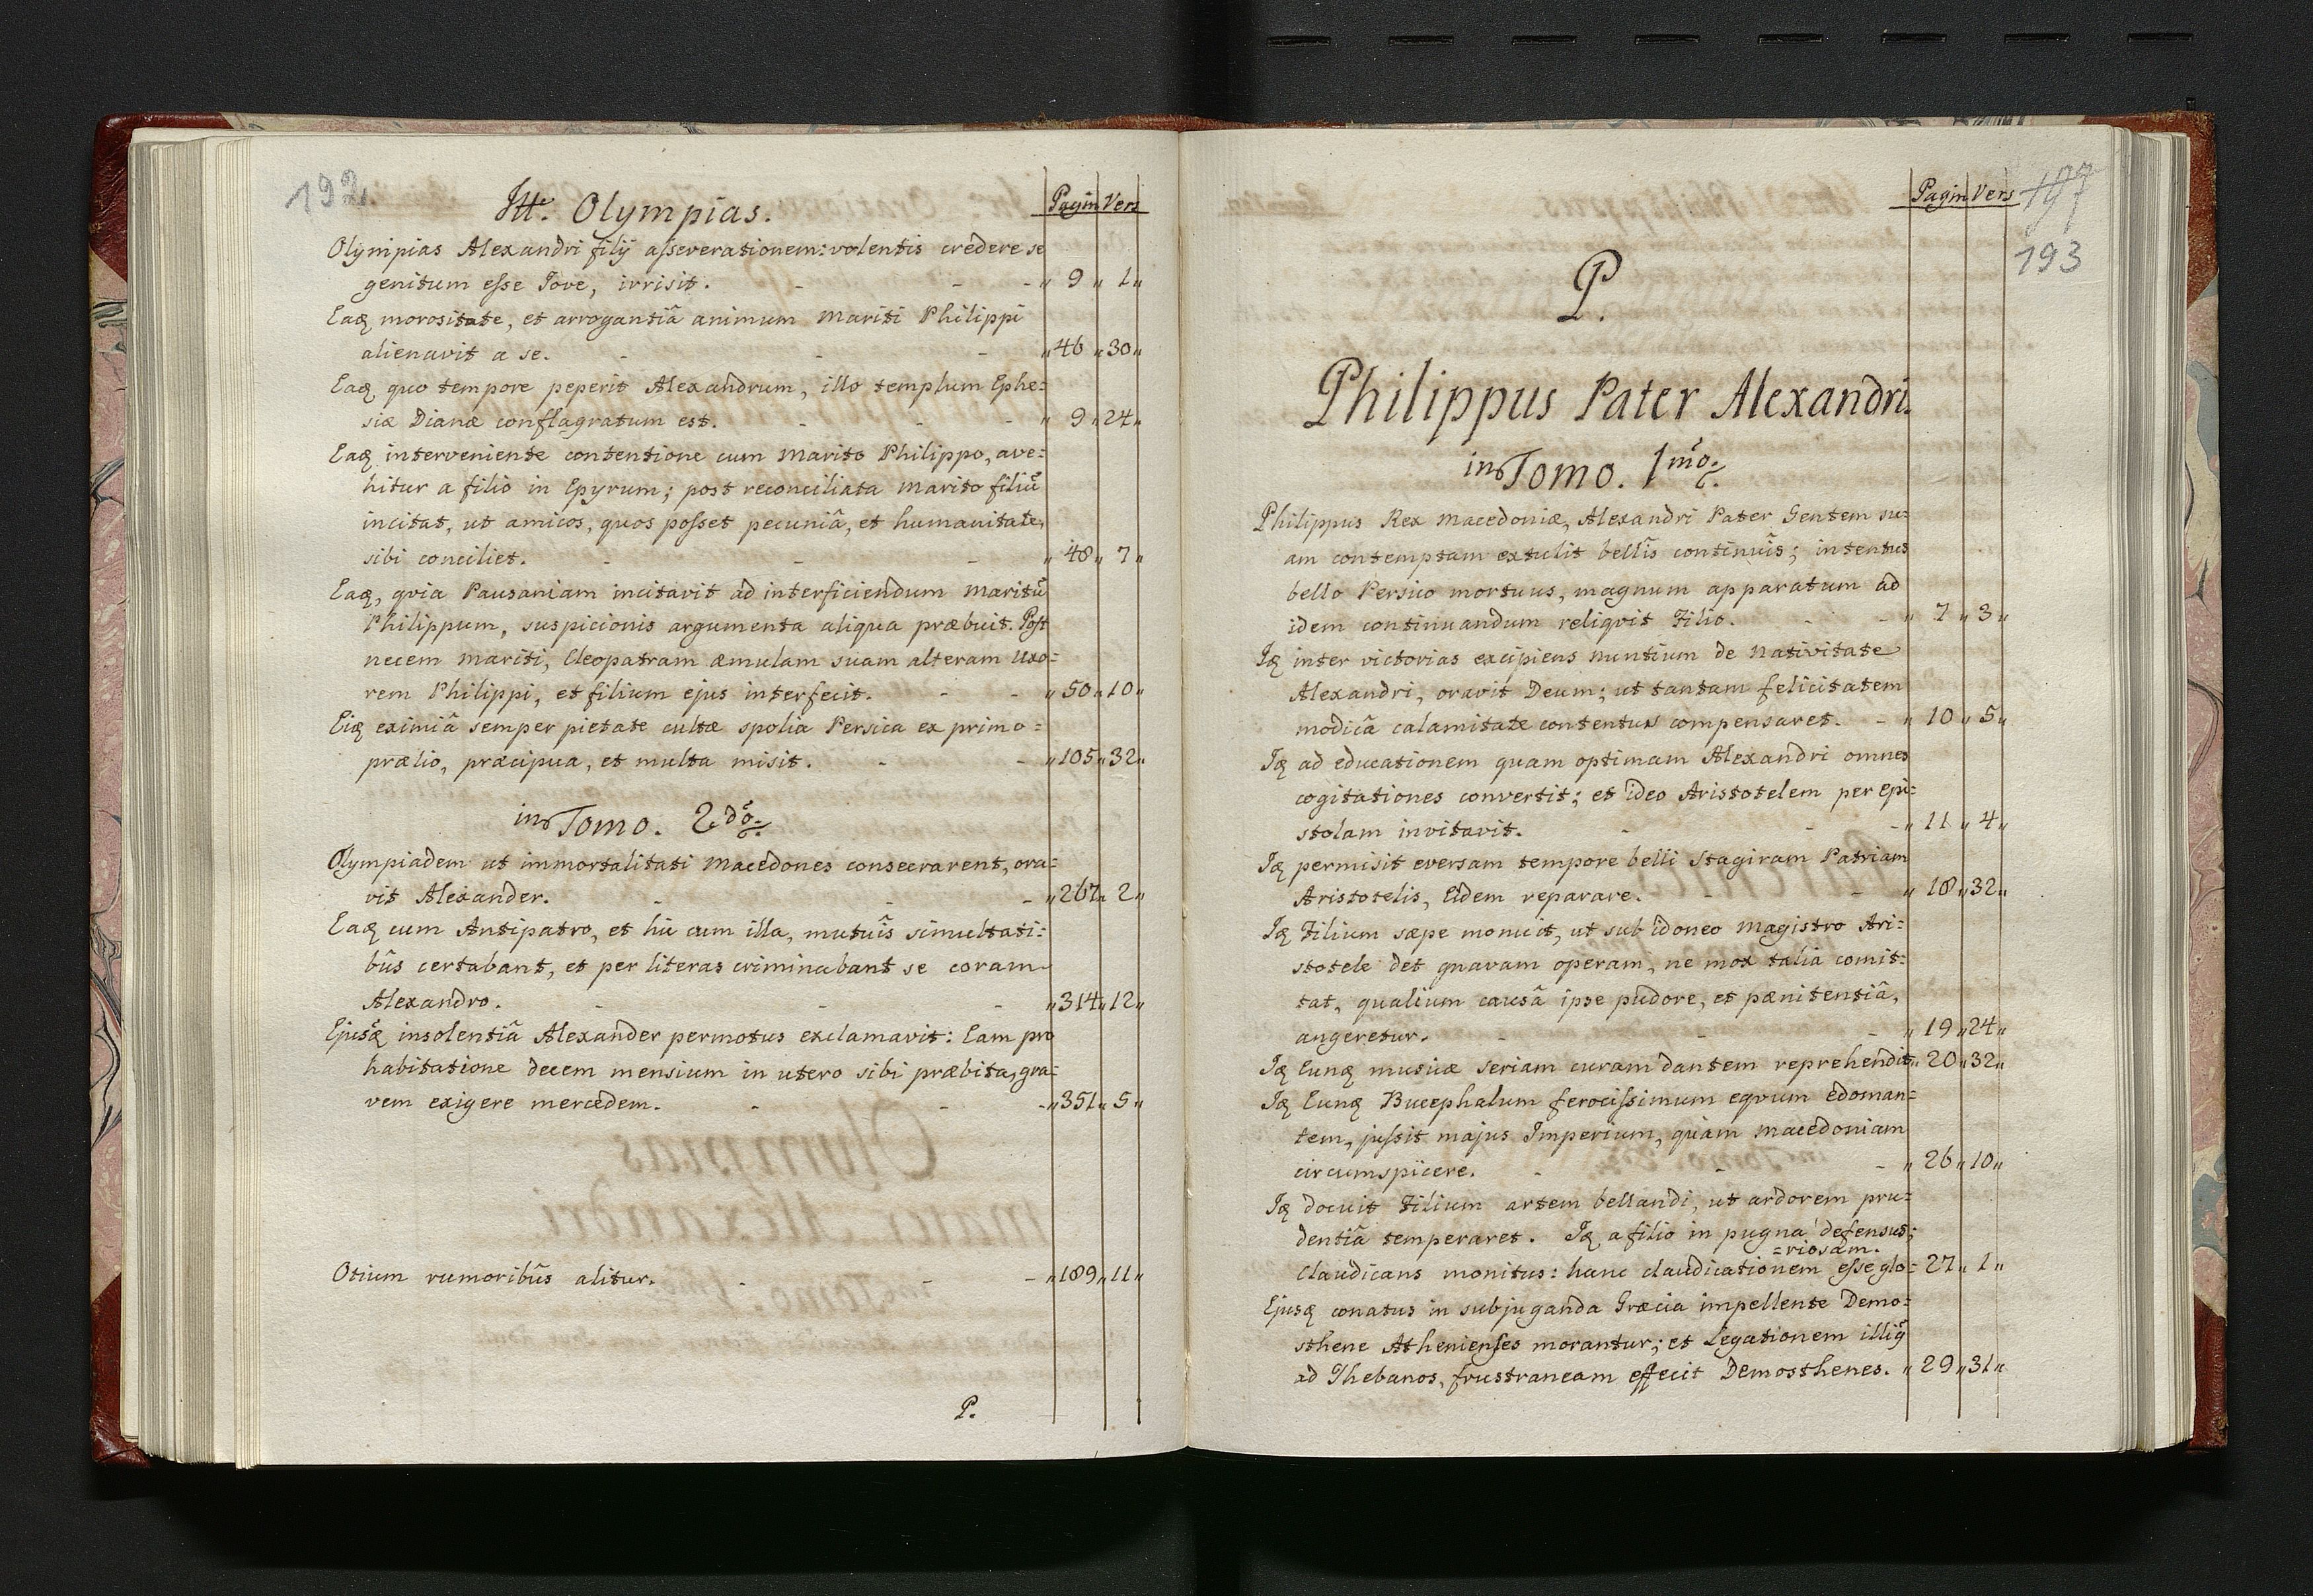 192.
Itt. Olympias.
Pagin Vers
Olympias Alexandri filij asseverationem: volentis credere se
genitum esse Jove, irrisit. - - - „ 9 „ 1 „
Eaq morositate, et arrogantiâ animum Mariti Philippi
alienavit a se. - - - „ 46 „ 30 „
Eaq quo tempore peperit Alexandrum, illo templum Ephe=
siæ Dianæ conflagratum est. - - - „ 9 „ 24 „
Eaq interveniente contentione cum Marito Philippo, ave=
hitur a filio in Epyrum; post reconciliata Marito filiū
incitat, ut amicos, quos posset pecuniâ, et humanitate,
sibi conciliet. - - - „ 48 „ 7 „
Eaq, qvia Pausaniam incitavit ad interficiendum Maritū
Philippum, suspicionis argumenta aliqua præbuit. Post
necem Mariti, Cleopatram æmulam suam alteram Uxo=
rem Philippi, et filium ejus interfecit. - - „ 50 „ 10 „
Eiq eximiâ semper pietate cultæ spolia Persica ex primo =
prælio, præcipua, et multa misit. - - „ 105 „ 32 „
in Tomo. 2do.
Olympiadem ut immortalitati Macedones consecrarent, ora=
vit Alexander. - - - „ 267 „ 2 „
Eaq cum Antipatro, et hic cum illa, mutuîs simultati=
bûs certabant, et per literas criminabant se coram
Alexandro. - - - „ 314 „ 12 „
Ejusq insolentiâ Alexander permotus exclamavit: Eam pro
habitatione decem mensium in utero sibi præbita, gra=
vem exigere mercedem. - - - „ 351 „ 5 „
Otium rumoribûs alitur. - - - „ 189 „ 11 „
P.
Pagin Vers
197
193
P.
Philippus Pater Alexandri.
in Tomo. 1mo.
Philippus Rex Macedoniæ, Alexandri Pater Gentem su=
am contemptam extulit bellîs continuîs; intentus
bello Persico mortuus, magnum apparatum ad
idem continuandum reliqvit Filio. - - „ 7 „ 3 „
Iq inter victorias excipiens nuntium de Nativitate
Alexandri, oravit Deum; ut tantam felicitatem
modicâ calamitate contentus compensaret. - „ 10 „ 5 „
Iq ad educationem quam optimam Alexandri omnes
cogitationes convertit; et ideo Aristotelem per epi=
stolam invitavit. - - - „ 11 „ 4 „
Iq permisit eversam tempore belli Stagiram Patriam
Aristotelis, Eidem reparare. - - „ 18 „ 32 „
Iq Filium sæpe monuit, ut sub idoneo Magistro Ari=
stotele det gnavam operam, ne mox talia comit=
tat, qualium causâ ipse pudore, et pænitentiâ,
angeretur. - - - „ 19 „ 24 „
Iq Eunq musicæ seriam curam dantem reprehendit. „ 20 „ 32 „
Iq Eunq Bucephalum ferocissimum eqvum edoman=
tem, jussit majus Imperium, quam Macedoniam
circumspicere. - - - „ 26 „ 10 „
Iq docuit Filium artem bellandi, ut ardorem pru=
dentiâ temperaret. Iq a filio in pugna defensus;
=riosam.
Claudicans monitus: hanc claudicationem esse glo= 27 „ 1 „
Ejusq conatus in subjuganda Græcia impellente Demo=
sthene Athenienses morantur; et Legationem illiq
ad Thebanos, frustraneam effecit Demosthenes. „ 29 „ 31 „